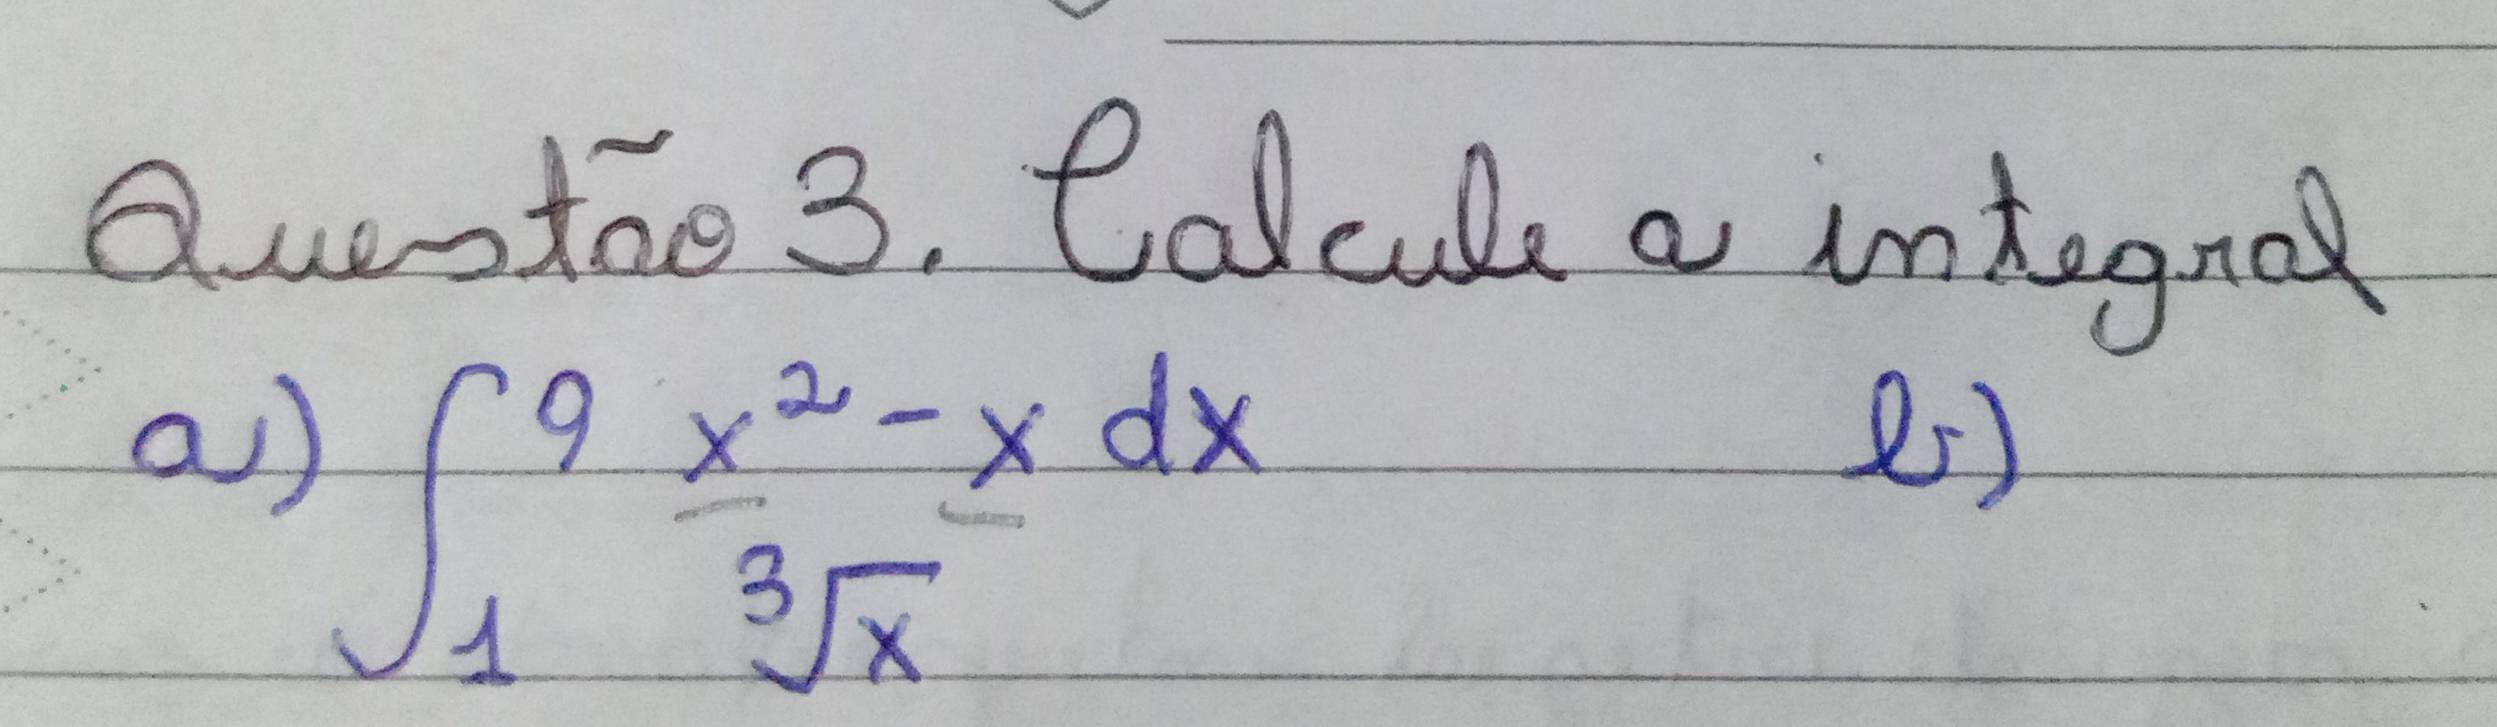 Questão 3. Calcule a integral
a) ∫₁⁹ x² - x dx b)
∛x